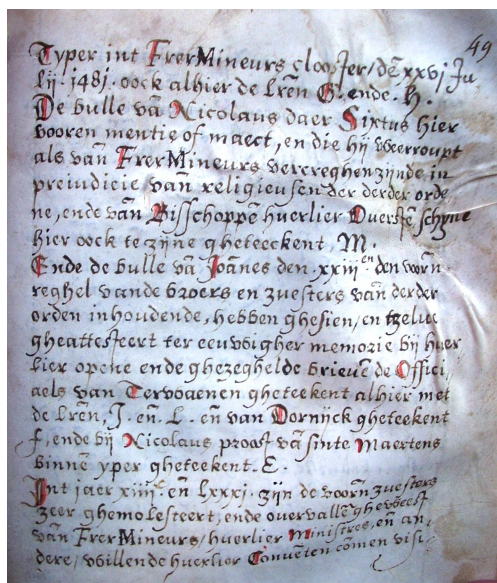 49
Typer int FrerMineurs clooster / dē xxvj Ju
lij. 148j. oock alhier de lrēn G. ende. H.
De bulle vā Nicolaus daer Sixtus hier
vooren mentie of maect, en die hij weerroupt
als van FrerMineurs vercreghen zijnde in
preiudicie van religieusen der derder orde
ne, ende van Bisschoppē huerlier Overstē schijne
hier oock te zijne gheteeckent, M.
Ende de bulle vā Joānes den. xxiij en. den voorn
reghel vande broers en zuesters van derder
orden inhoudende, hebben ghesien, en tzelve
gheattesteert ter eeuwigher memorie bij huer
lier opene ende ghezeghelde brieuē de Offici
aels van Tervoaenen gheteekent alhier met
de lrēn, J. eñ. L. eñ van Dornijck gheteekent
f, ende bij Nicolaus proost vā sinte Maertens
binnē yper gheteekent. E.
Int jaer xiiijc. eñ Lxxxj. zijn de voorn zuesters
zeer ghemolesteert, ende overvallē gheweest
van FrerMineurs / huerlier Ministres, en an,
dere, willende huerlier Convētē comen visi,